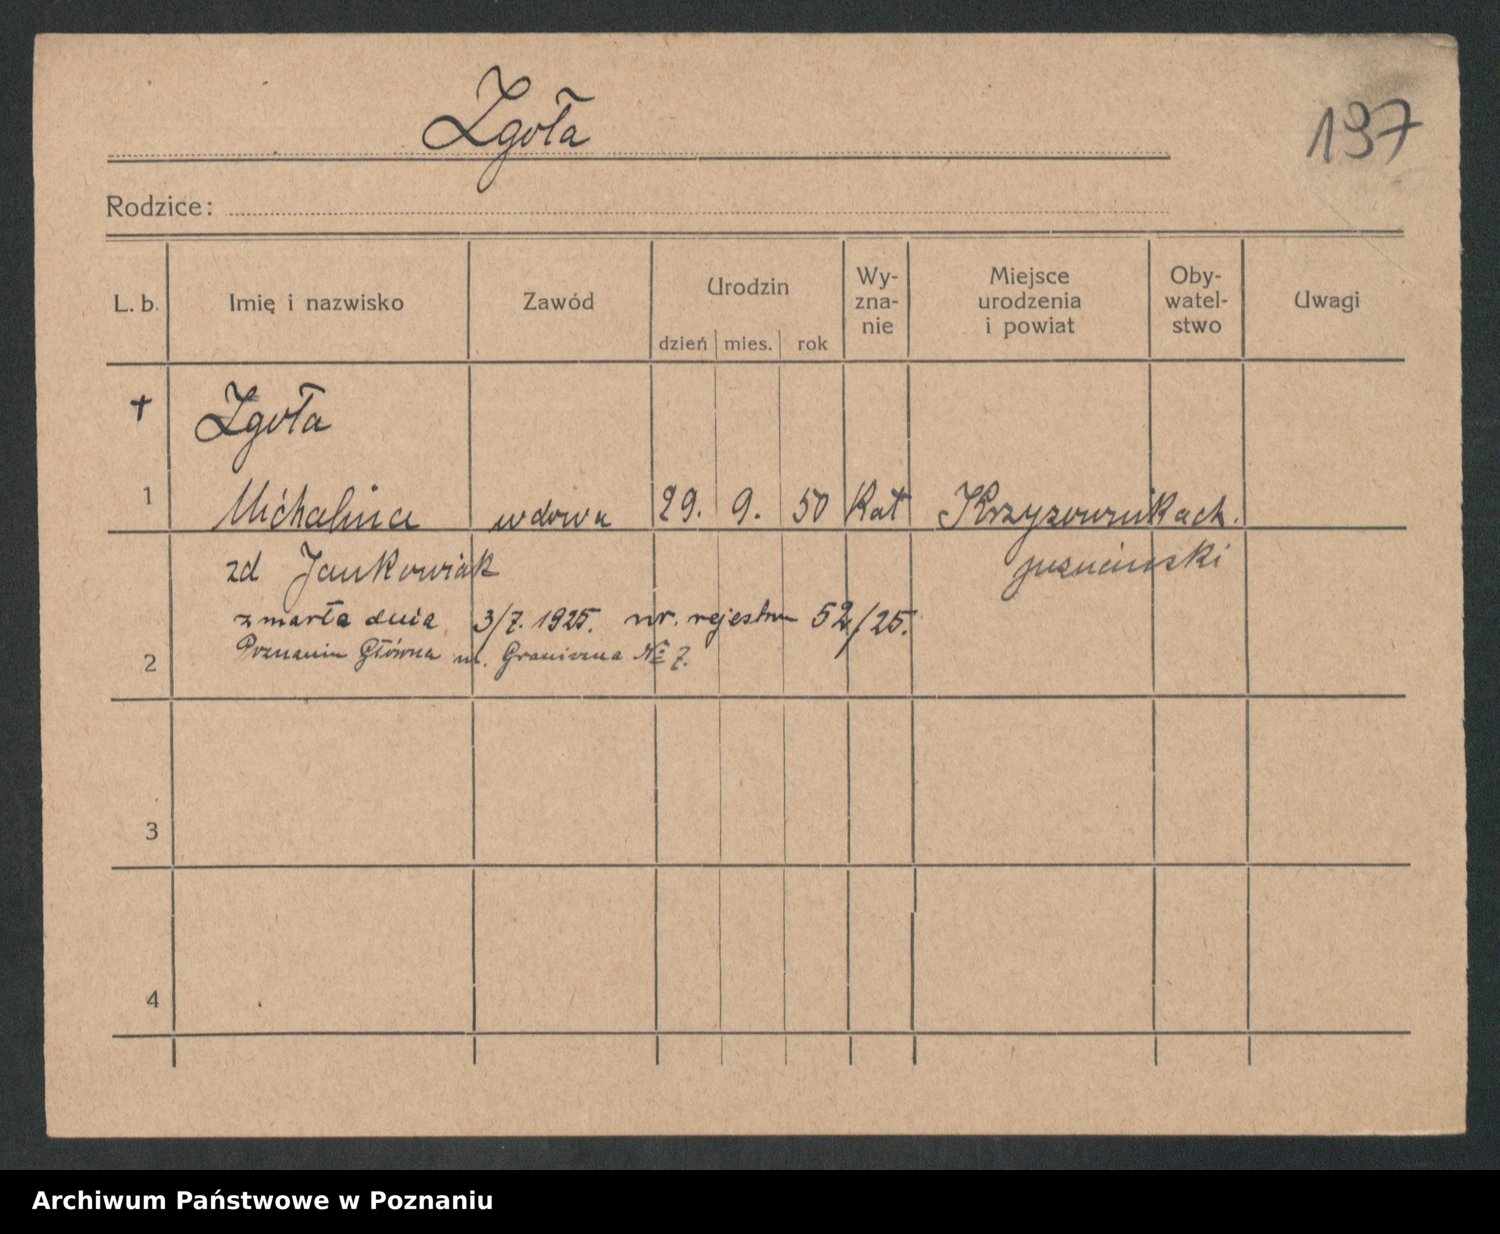 Zgoła
197
Rodzice:
L. b. Imię i nazwisko Zawód Urodzin dzień mies. rok Wy-zna-nie Miejsce urodzenia i powiat Oby-watel-stwo Uwagi
† Zgoła
1 Michalina wdowa 29. 9. 50 Kat Krzyzownikach.
zd Jankowiak poznański
zmarła dnia 3/7. 1925. nr. rejestru 52/25.
Poznaniu Główna ul. Graniczna № 7.
2
3
4
Archiwum Państwowe w Poznaniu